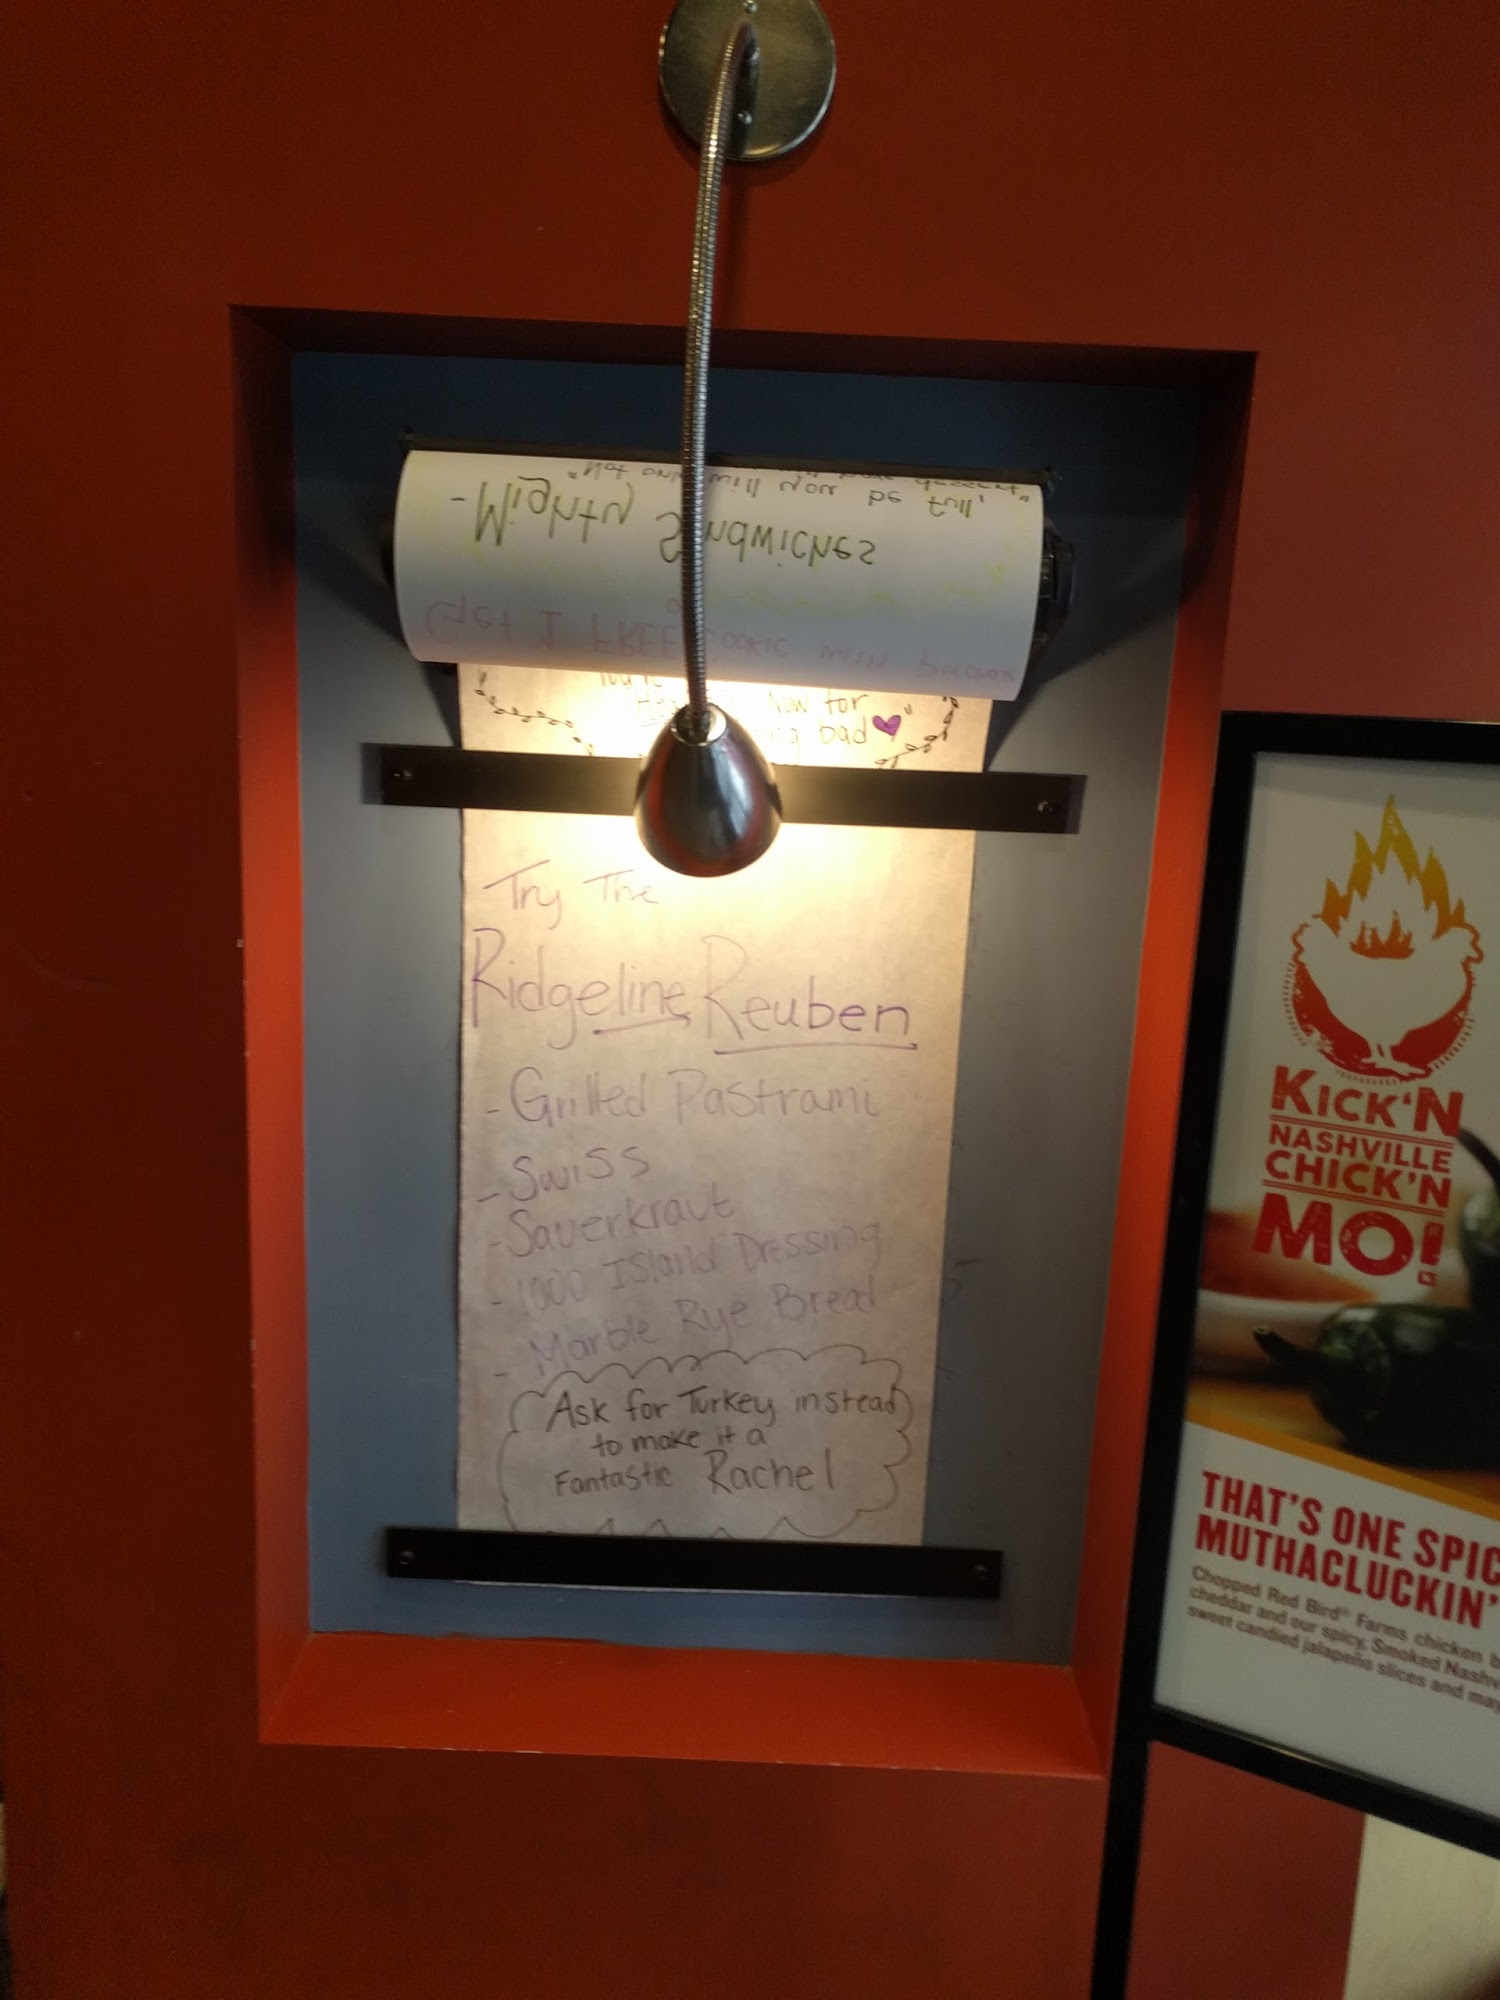 "Not only will you be full,
- Mighty Sandwiches
Get 1 FREE Cookie with
Now for
bad"
Try The
Ridgeline Reuben
- Grilled Pastrami
- Swiss
- Sauerkraut
- 1000 Island Dressing
- Marble Rye Bread
Ask for Turkey instead
to make it a
Fantastic Rachel
KICK'N
NASHVILLE
CHICK'N
MO!
THAT'S ONE SPIC
MUTHACLUCKIN'
Chopped Red Bird® Farms chicken b
cheddar and our spicy, Smoked Nashv
sweet candied jalapeño slices and may